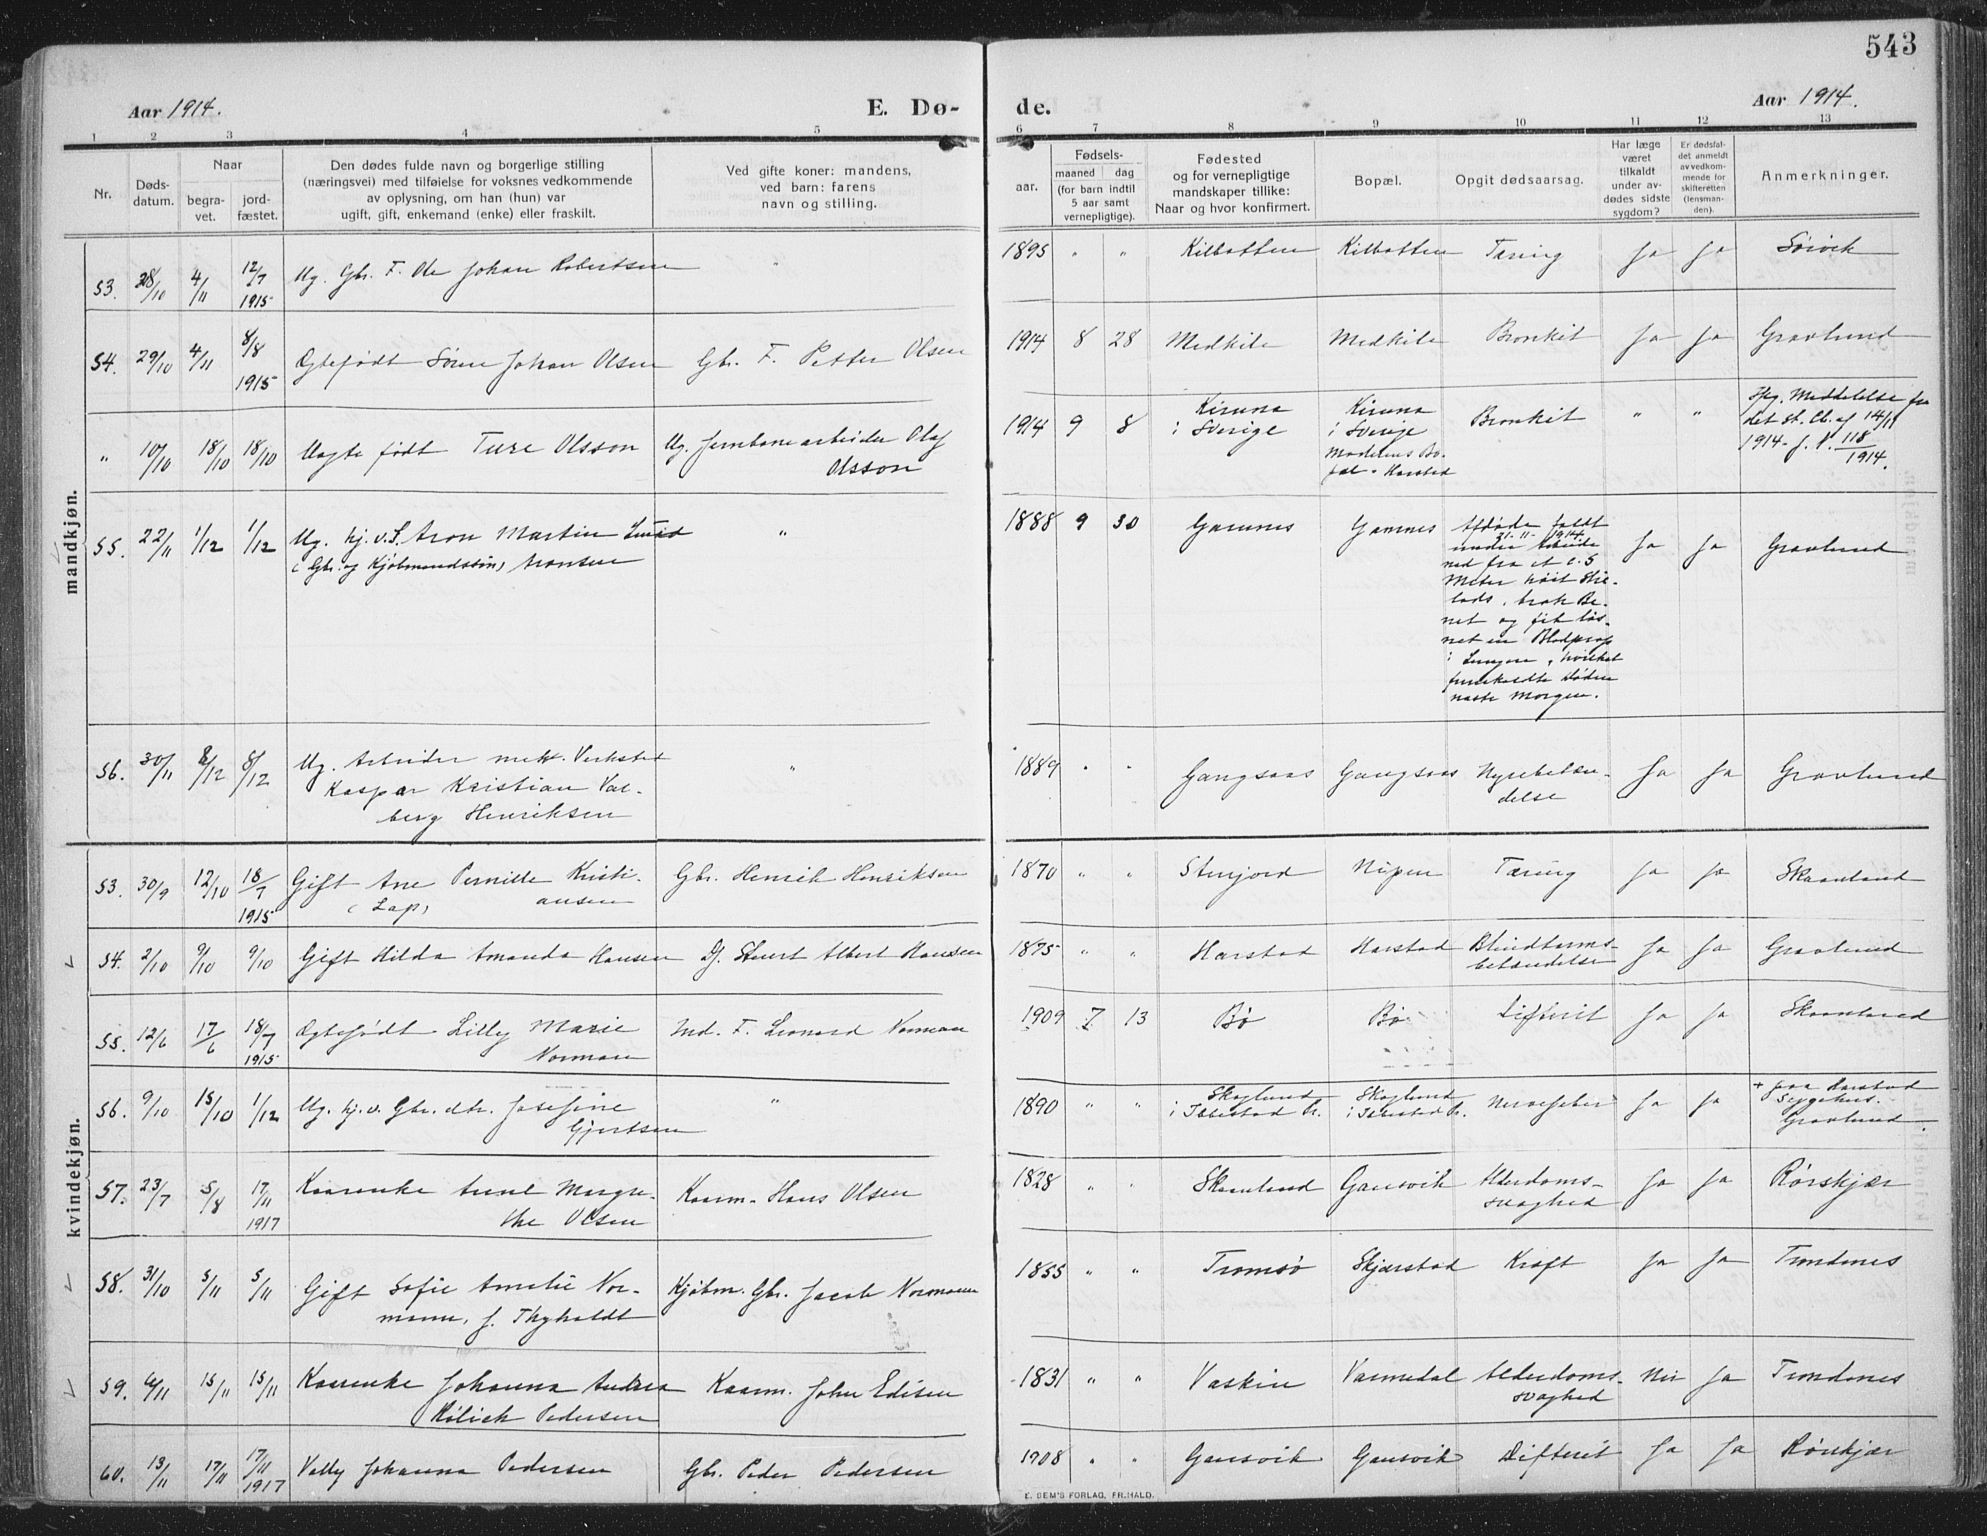 543
Aar 1914.
E. Dø-
de.
Aar 1914.
1 2 3 4 5 6 7 8 9 10 11 12 13
Nr.
Døds-
datum.
Naar
begra-
vet.
jord-
fæstet.
Den dødes fulde navn og borgerlige stilling
(næringsvei) med tilføielse for voksnes vedkommende
av oplysning, om han (hun) var
ugift, gift, enkemand (enke) eller fraskilt.
Ved gifte koner: mandens,
ved barn: farens
navn og stilling.
aar.
Fødsels-
maaned dag
(for barn indtil
5 aar samt
vernepligtige).
Fødested
og for vernepligtige
mandskaper tillike:
Naar og hvor konfirmert.
Bopæl.
Opgit dødsaarsag.
Har læge
været
tilkaldt
under av-
dødes sidste
sygdom?
Er dødsfal-
det anmeldt
av vedkom-
mende for
skifteretten
(lensman-
den).
Anmerkninger.
mandkjøn.
53. 28/10 4/11 12/7 1915 Ug. Gbr. F. Ole Johan Robertsen " 1895 " " Kilbotten Kilbotten Tæring Ja Ja Sørvik
54. 29/10 4/11 8/8 1915 Ogtefødt Sören Johan Olsen Gbr. F. Petter Olsen 1914 8 28 Medkile Medkile Bronkit Ja Ja Gravlund
" 10/10 18/10 18/10 Uagte født Ture Olsson Ug. Jernbanearbeider Olaf
Olsson 1914 9 8 Kiruna
i Sverige Kiruna
i Sverige
Moderens Bo-
pæl - Harstad Bronkit " " Meddelelse fra
det st. Cb. af 14/11
1914 - j. P. 118/1914.
55. 22/11 1/12 1/12 Ug. hj. v. S. Aron Martin
(Gbr. og Kjøbmandssøn) Aronsen " 1888 9 30 Gamnes Gamnes Afdøde faldt
21-11-1914
under Arbeide
ned fra et c. 5
Meter høit Stil-
lads, brak Be-
net og fik løs-
net en Blodprop
i Lungen, hvilket
foraarsagede Døden
næste Morgen. Ja Ja Gravlund
56. 30/11 8/12 8/12 Ug. Arbeider mek. Verksted
Kasper Kristian Val-
berg Henriksen " 1889 " " Gangsaas Gangsaas Nyrebetæn-
delse Ja Ja Gravlund
kvindekjøn.
53. 30/9 12/10 18/7 1915 Gift Ane Pernille Kristi-
(Lap) ansen Gbr. Henrik Henriksen 1870 " " Stenjord Nipen Tæring Ja Ja Skaanland
54. 2/10 9/10 9/10 Gift Hilda Amanda Hansen Albert Hansen 1875 " " Harstad Harstad Blindtarms-
betændelse Ja Ja Gravlund
55. 12/6 17/6 18/7 1915 Ogtefødt Lilly Marie
Norman Ind. F. Leonard Norman 1909 7 13 Bø Bø Difterit Ja Ja Skaanland
56. 9/10 15/10 1/12 Ug. hj. v. Gbr. dtr. Josefine
Gjertsen " 1890 " " Skoglund
i Skoglund
i Nervefeber Ja Ja + paa Harstad
Sygehus.
Gravlund.
57. 23/7 5/8 17/11 1917 Kaarenke Anne Margre-
the Olsen Kaarm. Hans Olsen 1828 " " Skaanland Gausvik Alderdoms-
svaghed Ja Ja Rørskjær
58. 31/10 5/11 5/11 Gift Sofie Amalie Nor-
mann, f. Thyholdt Kjøbm. Gbr. Jacob Normann 1855 " " Tromsø Skjærstad Kræft Ja Ja Trondenes
59. 6/11 15/11 15/11 Kaarenke Johanna Andrea
Kølich Pedersen Kaarm. John Edisen 1831 " " Vaskin Varmedal Alderdoms-
svaghed Nei Ja Trondenes
60. 13/11 17/11 17/11 1917 Vally Johanna Pedersen Gbr. Peder Pedersen 1908 " " Gausvik Gausvik Difterit Ja Ja Rørskjær
E. SEM'S FORLAG, FR.HALD.